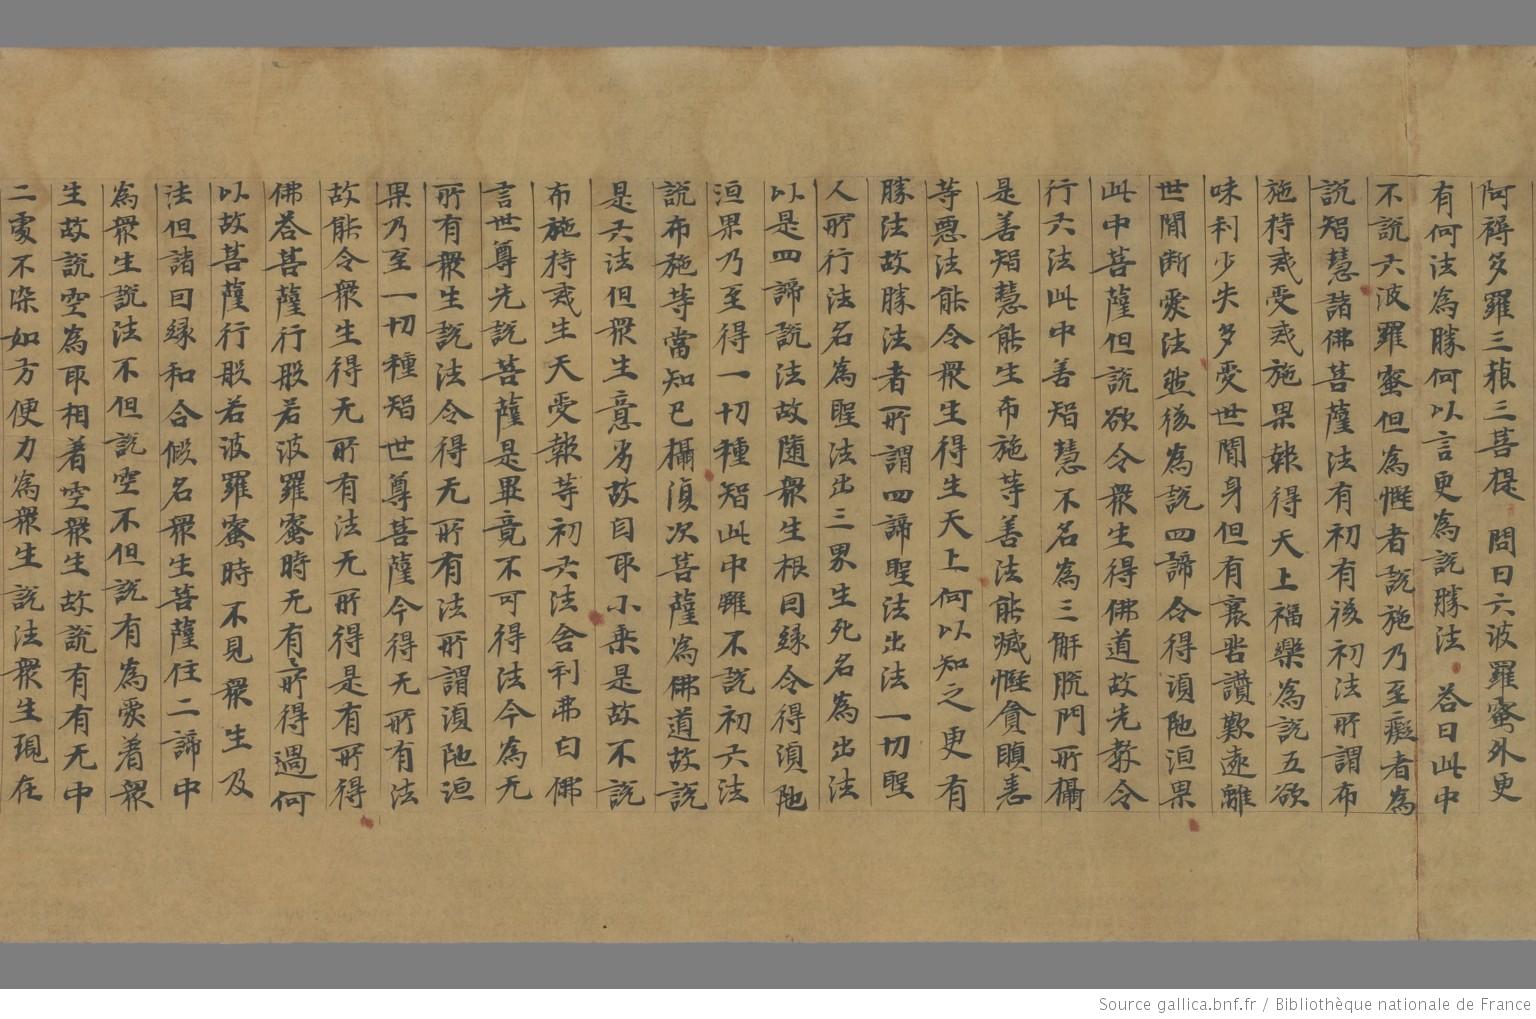 阿耨多羅三藐三菩提 問曰六波羅蜜外更
有何法為勝何以言更為說勝法 荅曰此中
不說六波羅蜜但為慳者說施乃至癡者為
說智慧諸佛菩薩法有初有後初法所謂布
施持戒受戒施果報得天上福樂為說五欲
味利少失多受世間身但有衰苦讚歎遠離
世間斷愛法然後為說四諦令得湏陁洹果
此中菩薩但說欲令眾生得佛道故先教令
行六法此中善智慧不名為三解脫門所攝
是善智慧能生布施等善法能滅慳貪瞋恚
等惡法能令眾生得生天上何以知之更有
勝法故勝法者所謂四諦聖法出法一切聖
人所行法名為聖法出三界生死名為出法
以是四諦說法故隨眾生根因緣令得湏陁
洹果乃至得一切種智此中雖不說初六法
說布施等當知已攝湏次菩薩為佛道故說
是六法但眾生意劣故自取小乘是故不說
布施持戒生天受報等初六法舍利弗白佛
言世尊先說菩薩是畢竟不可得法今為无
所有眾生說法令得无所有法所謂湏陁洹
果乃至一切種智世尊菩薩今得无所有法
故能令眾生得无所有法无所得是有所得
佛荅菩薩行般若波羅蜜時无有所得過何
以故菩薩行般若波羅蜜時不見眾生及
法但諸因緣和合假名眾生菩薩住二諦中
為眾生說法不但說空不但說有為愛著眾
生故說空為取相著空眾生故說有有无中
二處不染如方便力為眾生說法眾生現在